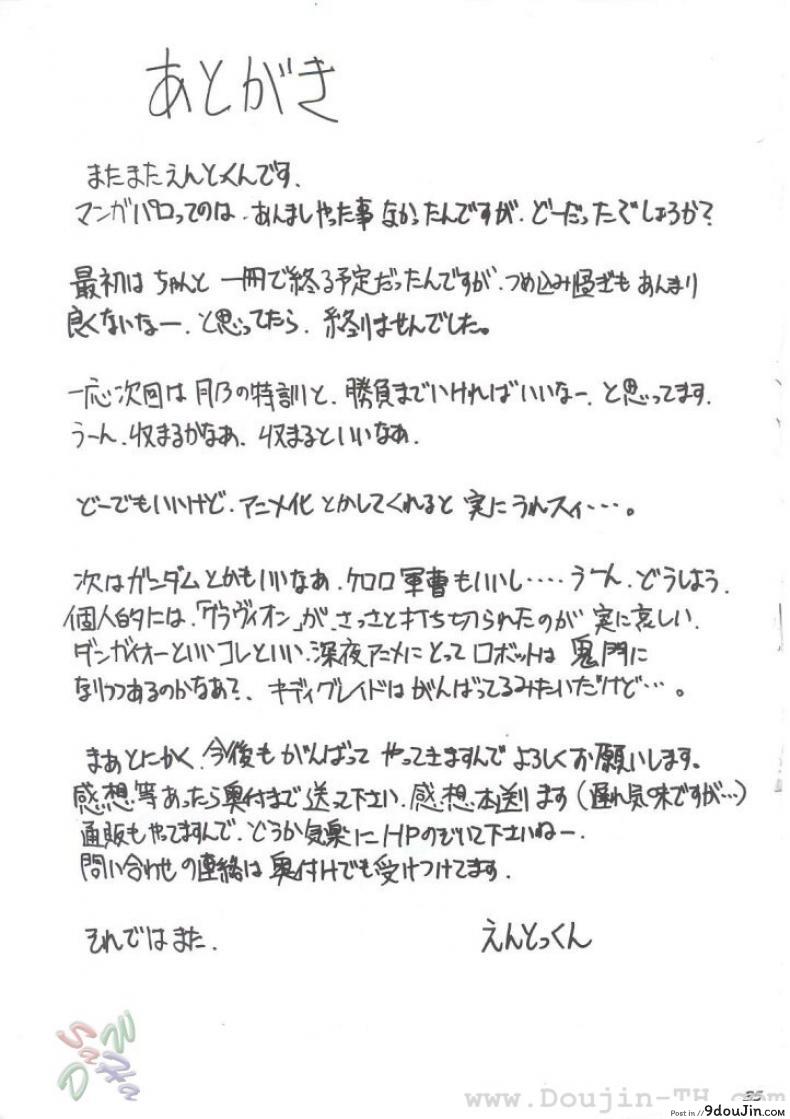 あとがき
またまたえんとっくんです、
マンガパロってのは、あんましやった事なかったんですが、どーだったでしょうか？
最初はちゃんと一冊で終る予定だったんですが、つめ込み過ぎもあんまり
良くないなー、と思ってたら、終りませんでした。
一応次回は月乃の特訓と、勝負までいければいいなー、と思ってます、
うーん、収まるかなあ、収まるといいなあ、
どーでもいいけど、アニメ化とかしてくれると実にうれスィ…。
次はガンダムとかもいいなあ、ケロロ軍曹もいいし‥‥うーん、どうしよう、
個人的には、「グラヴィオン」が、さっさと打ち切られたのが実に哀しい、
ダンガイオーといいコレといい、深夜アニメにとってロボットは鬼門に
なりつつあるのかなあ？、キディグレイドはがんばってるみたいだけど…。
まあとにかく、今後もがんばってやってきますんでよろしくお願いします。
感想等あったら奥付まで送って下さい、感想本送ります（遅れ気味ですが…）
通販もやてますんで、どうか気楽にHPのぞいて下さいねー、
問い合わせの連絡は奥付けでも受けつけてます、
それではまた、
えんとっくん
SaWa
D
www.Doujin-TH.com
35
Post in // 9douJin.com